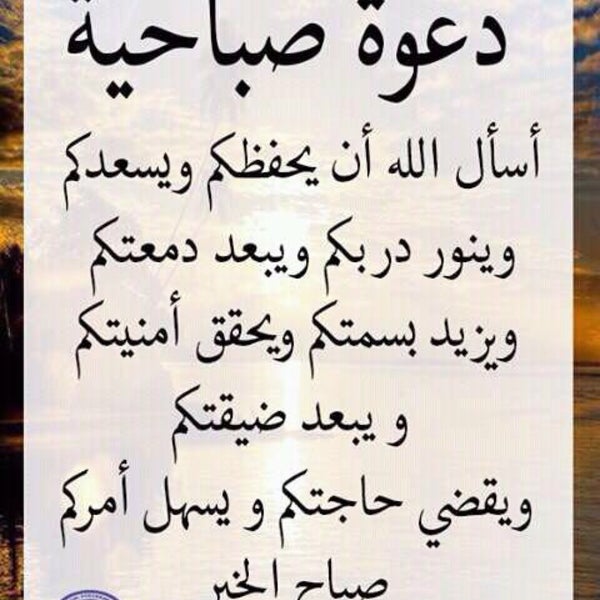 دعوة صباحية
أسأل الله أن يحفظكم ويسعدكم
وينور دربكم ويبعد دمعتكم
ويزيد بسمتكم ويحقق أمنيتكم
و يبعد ضيقتكم
ويقضي حاجتكم و يسهل أمركم
صباح الخير